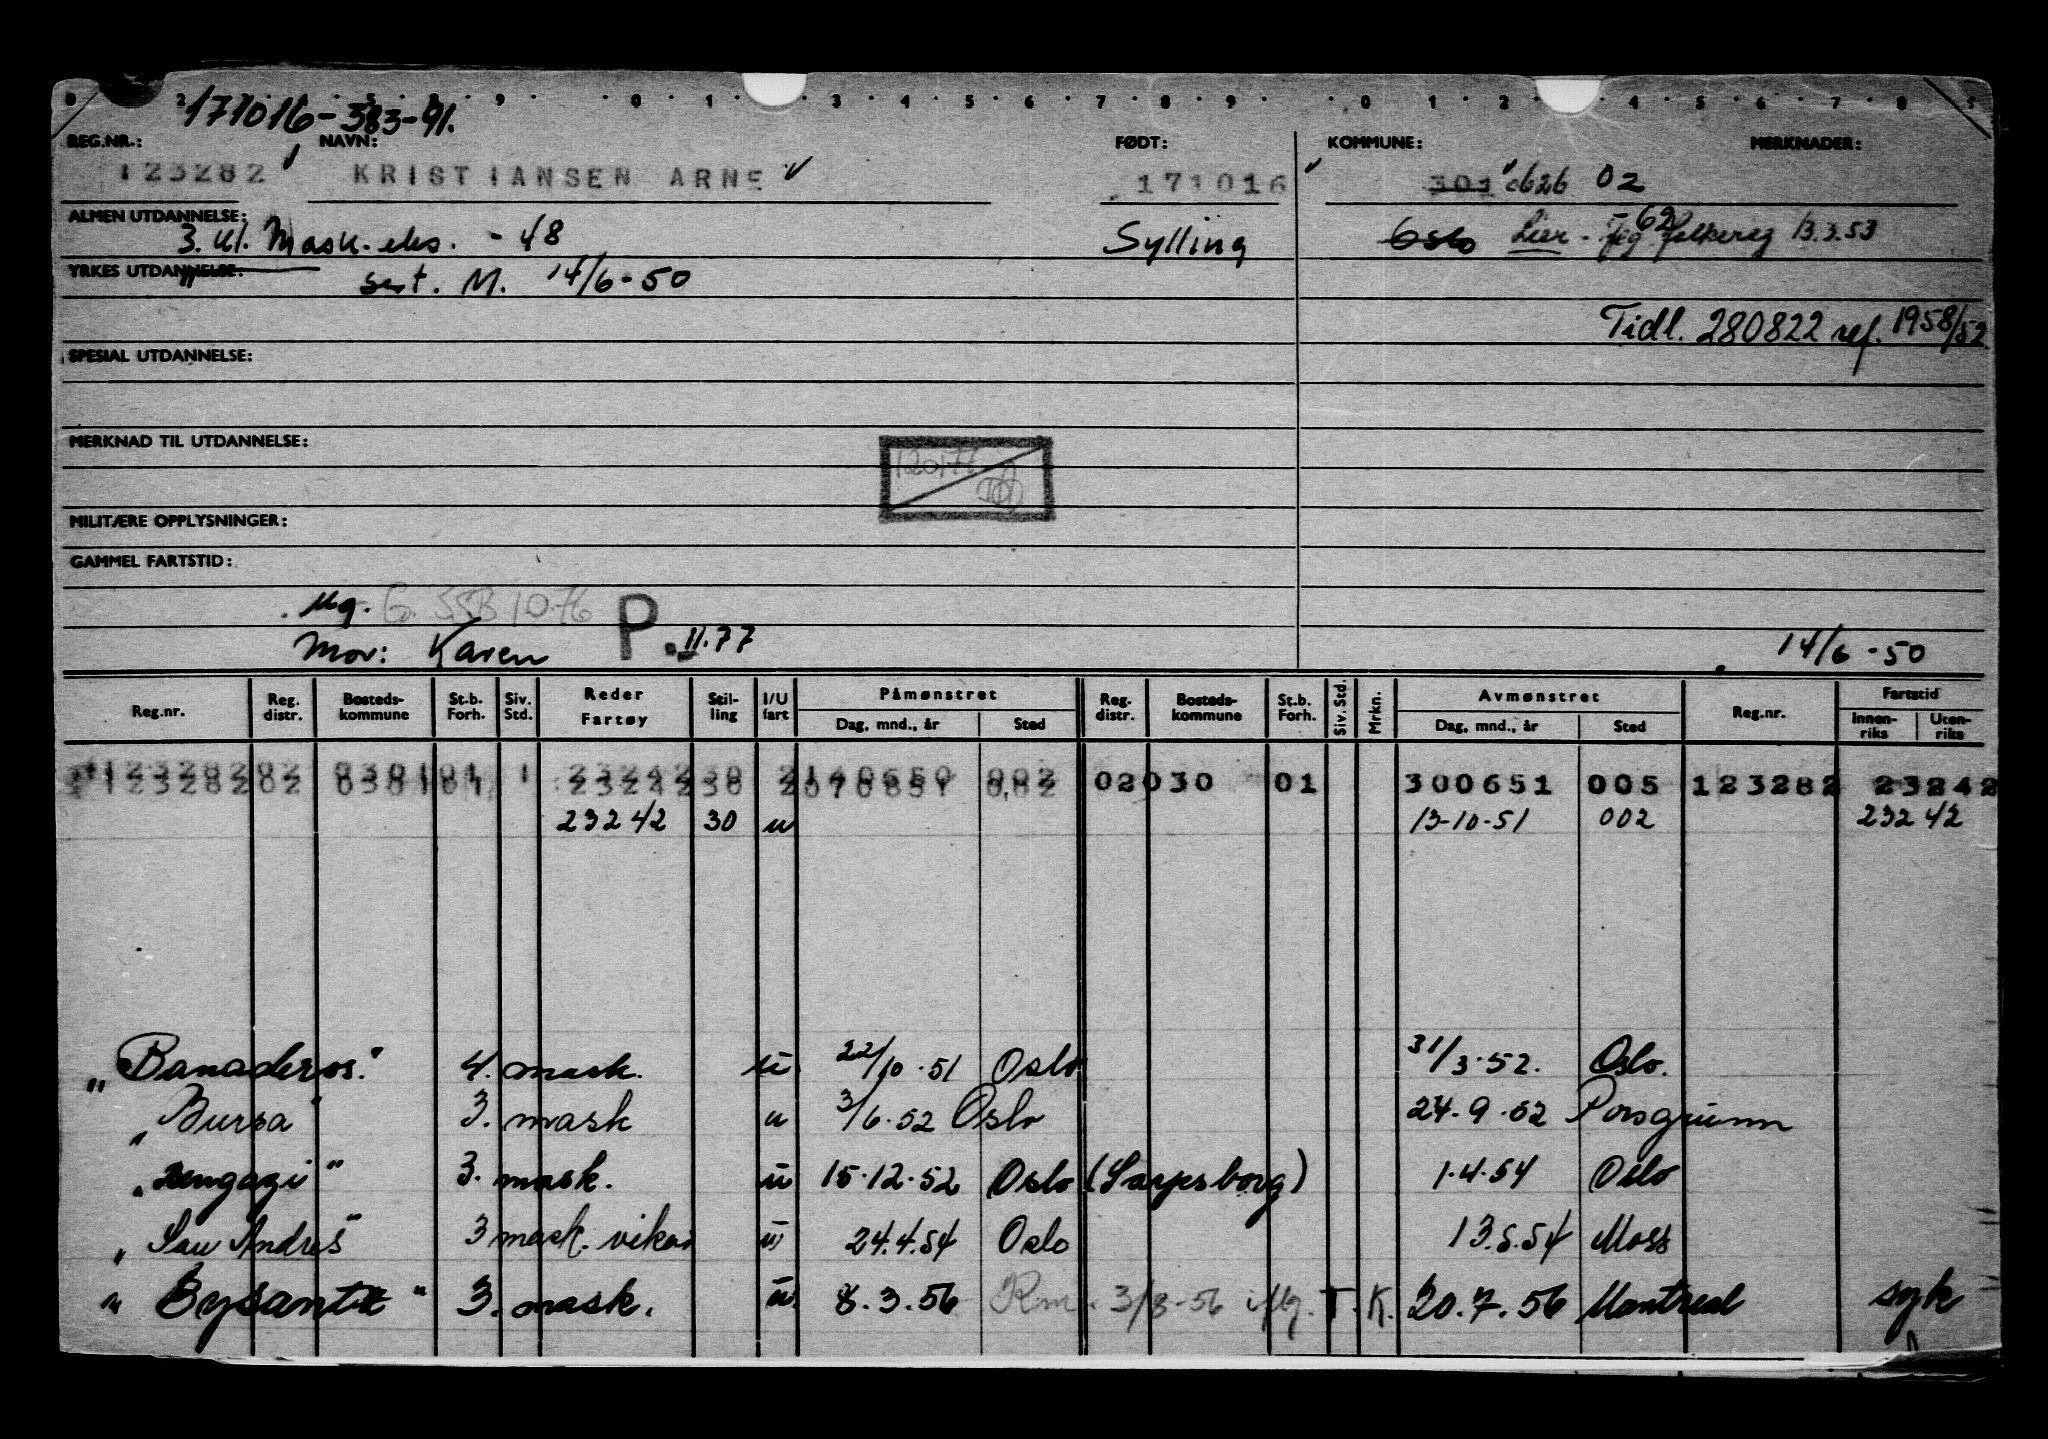 171016-383-91.
REG.NR.: NAVN: FØDT: KOMMUNE: MERKNADER:
123282 KRISTIANSEN ARNE 171016 301 0626 02
ALMEN UTDANNELSE: 3. kl. Mask. eks. - 48 Sylling Oslo Lier - 62 13.3.53
YRKES UTDANNELSE: sert. M. 14/6-50
Tidl. 280822 ref. 1958/52
SPESIAL UTDANNELSE:
MERKNAD TIL UTDANNELSE:
MILITÆRE OPPLYSNINGER:
GAMMEL FARTSTID:
Mg. G. SSB 10.76 P. 11.77
Mor: Karen 14/6-50
Reg.nr. Reg. distr. Bosteds-kommune St.b. Forh. Siv. Std. Reder Fartøy Stil-ling I/U fart Påmønstret Dag, mnd., år Sted Reg. distr. Bosteds-kommune St.b. Forh. Siv. Std. Mrkn. Avmønstret Dag, mnd., år Sted Reg.nr. Fartstid Innen-riks Uten-riks
123282 02 0301 01 1 23242 30 2 002 02 030 01 300651 005 123282 23242
23242 30 u 13-10-51 002 23242
"Banaderos" 4. mask. u 22/10.51 Oslo 31/3.52. Oslo.
"Bursa" 3. mask u 3/6.52 Oslo 24.9.52 Porsgrunn
3. mask. u 15.12.52 Oslo (Sarpsborg) 1.4.54 Oslo
"San Andres" 3 mask. vikar u 24.4.54 Oslo 13.5.54 Moss
"Bysantz" 3. mask. u 8.3.56 3/8-56 T.K. 20.7.56 Montreal syk